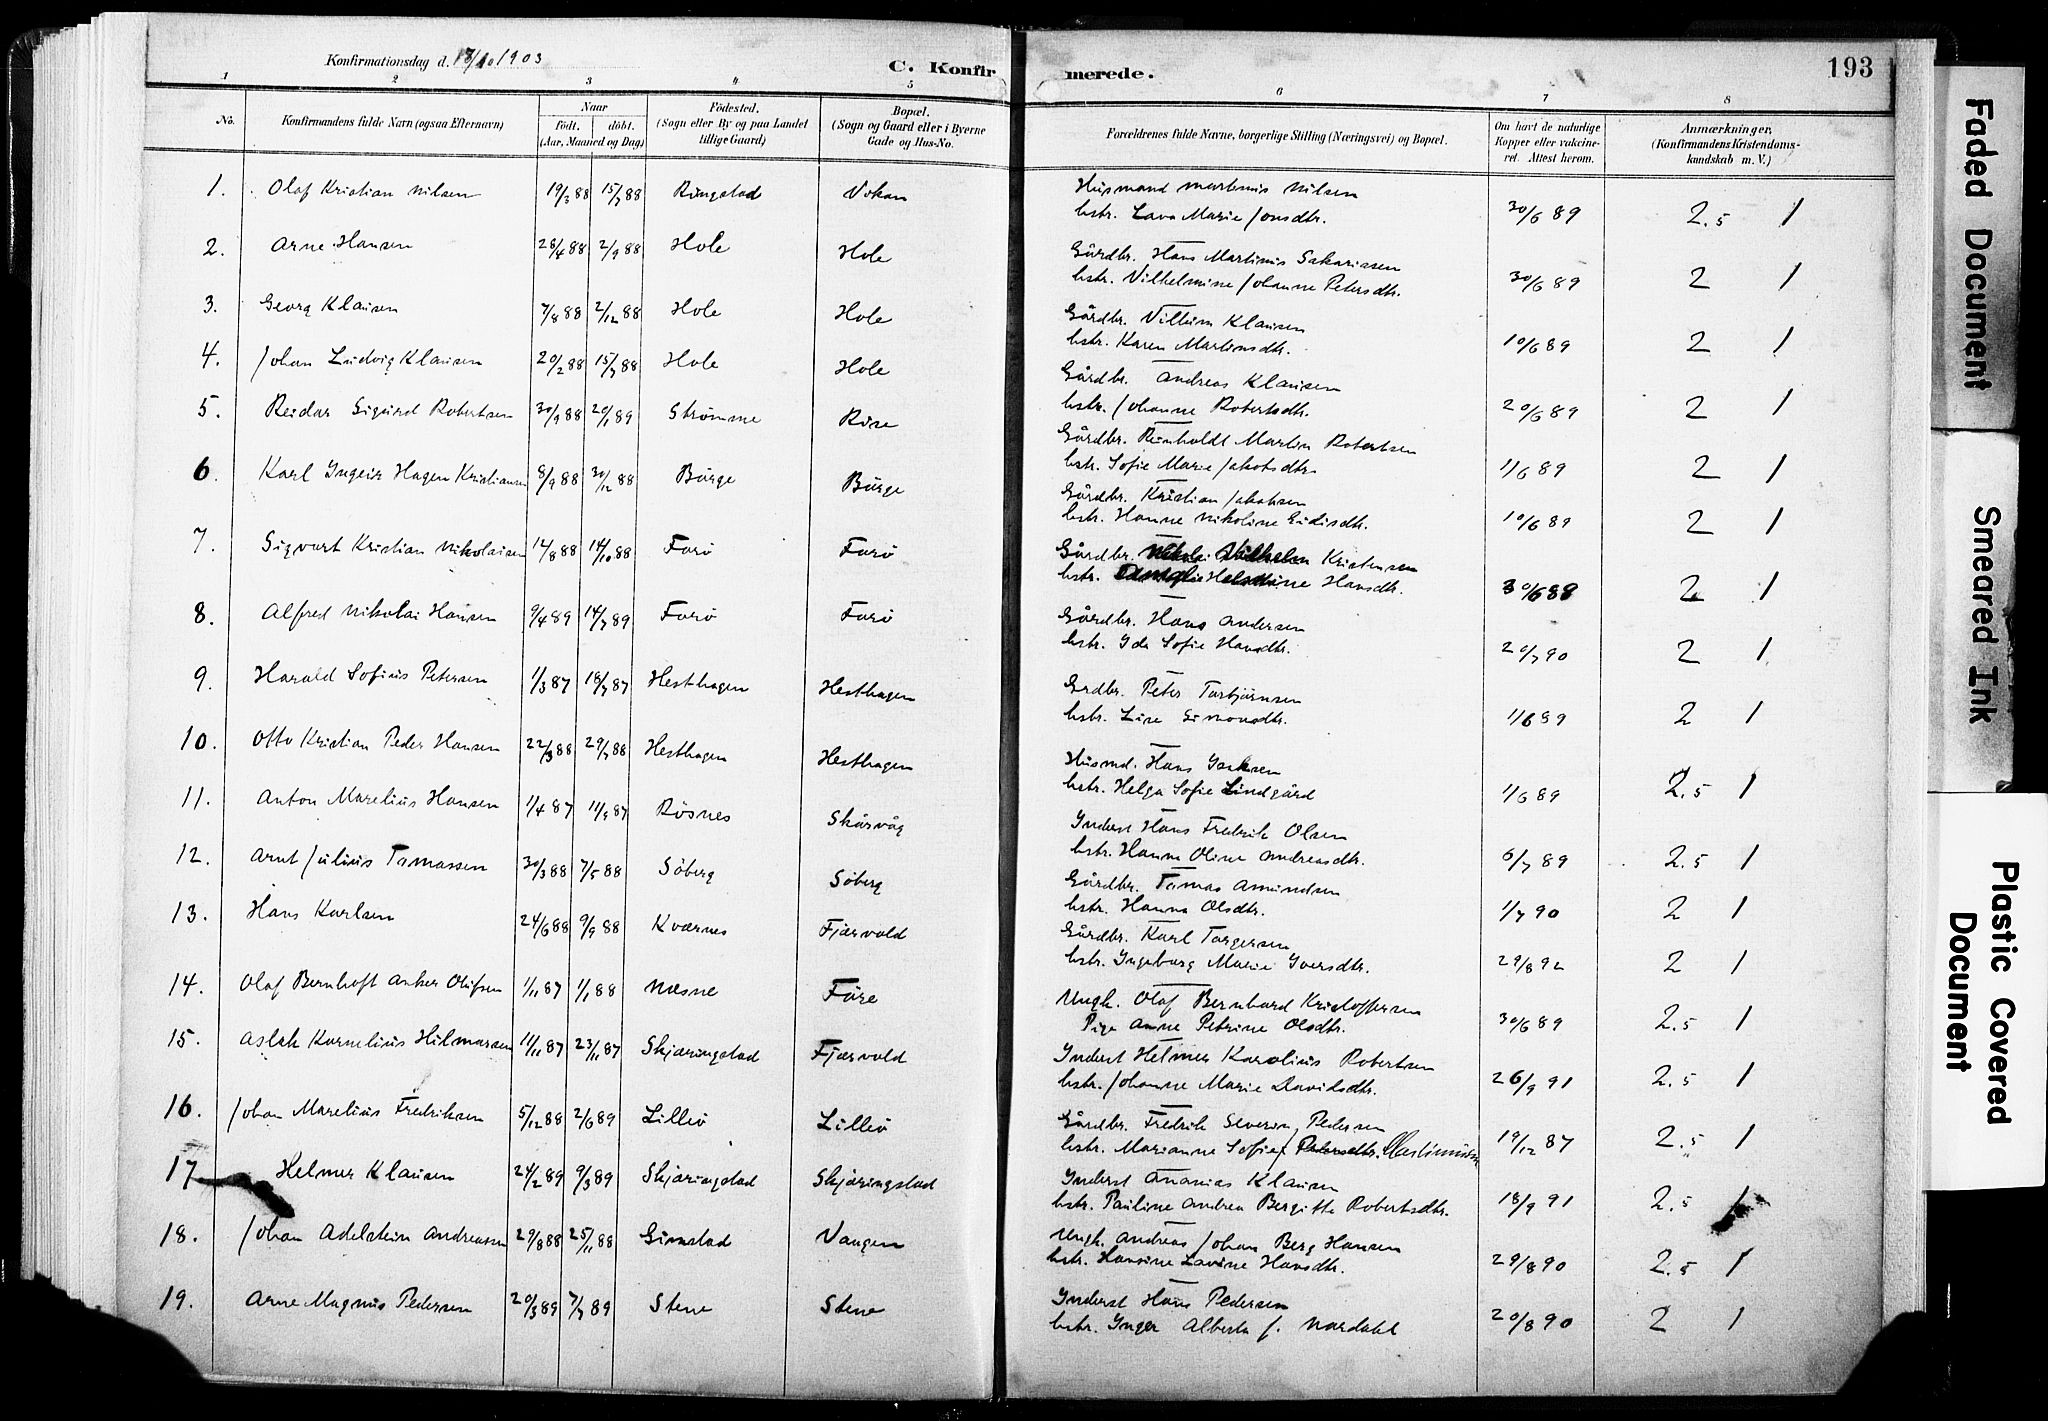 Konfirmationsdag d. 1903
C. Konfirmerede.
193
1 2 3 4 5 6 7 8
No.
Konfirmandens fulde Navn (ogsaa Efternavn)
Naar
födt. döbt.
(Aar, Maaned og Dag)
Födested.
(Sogn eller By og paa Landet
tillige Gaard)
Bopæl.
(Sogn og Gaard eller i Byerne
Gade og Hus-No.
Forældrenes fulde Navne, borgerlige Stilling (Næringsvei) og Bopæl.
Om havt de naturlige
Kopper eller vakcine-
ret. Attest herom.
Anmærkninger,
(Konfirmandens Kristendoms-
kundskab m. V.)
1. Olaf Kristian Nilsen 19/3 88 15/7 88 Ringstad Vokan Husmand Martinus Nilsen
hstr. Lava Marie Jonsdtr. 30/6 89 2.5 1
2. Arne Hansen 26/4 88 2/9 88 Hole Hole Gårdbr. Hans Martinus Sakariasen
hstr. Vilhelmine Johanne Petersdtr. 30/6 89 2 1
3. Georg Klausen 7/8 88 2/12 88 Hole Hole Gårdbr. Villum Klausen
hstr. Karen Martinsdtr. 10/6 89 2 1
4. Johan Ludvig Klausen 20/2 88 15/7 88 Hole Hole Gårdbr. Andreas Klausen
hstr. Johanne Robertsdtr. 20/6 89 2 1
5. Reidar Sigurd Robertsen 30/9 88 20/1 89 Strømme Rise Gårdbr. Reinholdt Martin Robertsen
hstr. Sofie Marie Jakobsdtr. 1/6 89 2 1
6. Karl Ingeir Hagen Kristiansen 8/9 88 30/12 88 Burge Burge Gårdbr. Kristian Jakobsen
hstr. Hanne Nikoline Eidisdtr. 10/6 89 2 1
7. Sigvart Kristian Nikolaisen 14/8 88 14/10 88 Forö Forö Gårdbr. Nikolai Vilhelm Kristensen
hstr. Hansdtr. 30/6 88 2 1
8. Alfred Nikolai Hansen 9/4 89 14/7 89 Forö Forö Gårdbr. Hans Andersen
hstr. Ida Sofie Hansdtr. 20/7 90 2 1
9. Harald Sofius Petersen 1/3 87 18/7 87 Hesthagen Hesthagen Grdbr. Peter Torbjörnsen
hstr. Lise Simonsdtr. 1/6 89 2 1
10. Otto Kristian Peder Hansen 22/3 88 29/7 88 Hesthagen Hesthagen Husmd. Hans Isaksen
hstr. Helga Sofie Lindgård 1/6 89 2.5 1
11. Anton Marelius Hansen 1/4 87 11/9 87 Rösnes Skårvåg Inderst Hans Fredrik Olsen
hstr. Hanna Oline Andreasdtr. 6/7 89 2.5 1
12. Arnt Julius Tomassen 30/3 88 7/5 88 Söberg Söberg Gårdbr. Tomas Amundsen
hstr. Hanna Olsdtr. 1/7 90 2 1
13. Hans Karlsen 24/6 88 9/9 88 Kværnes Fjærvold Gårdbr. Karl Torgersen
hstr. Ingeborg Marie Iversdtr. 29/8 92 2 1
14. Olaf Bernhoft Anker Olufsen 1/11 87 1/1 88 Næsne Före Ungk. Olaf Bernhard Kristoffersen
Pige Anne Petrine Olsdtr. 30/6 89 2.5 1
15. Aslak Kornelius Hilmarsen 11/11 87 23/11 87 Skjæringstad Fjærvold Inderst Helmer Karolius Robertsen
hstr. Johanne Marie Davidsdtr. 26/9 91 2.5 1
16. Johan Marelius Fredriksen 5/12 88 2/6 89 Lilleö Lilleö Gårdbr. Fredrik Severin Pedersen
hstr. Marianne Sofie Pedersdtr. 19/12 87 2.5 1
17 Helmer Klausen 24/2 89 9/3 89 Skjæringstad Skjæringstad Inderst Ananias Klausen
hstr. Pauline Andrea Bergitte Robertsdtr. 18/9 91 2.5 1
18. Johan Adelstein Andreassen 29/8 88 25/11 88 Gimstad Vangen Ungk. Andreas Johan Berg Hansen
hstr. Hansine Lavine Hansdtr. 29/8 90 2.5 1
19. Arne Magnus Pedersen 20/3 89 7/7 89 Stene Stene Inderst Hans Pedersen
hstr. Inger Alberta f. Nordahl 20/8 90 2 1
Faded Document
Smeared Ink
Plastic Covered
Document